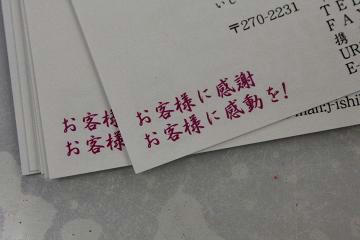 〒270-2231
TEL
FAX
携
UR
E-
お客様に感謝
お客様に感動を!
お客様
お客様